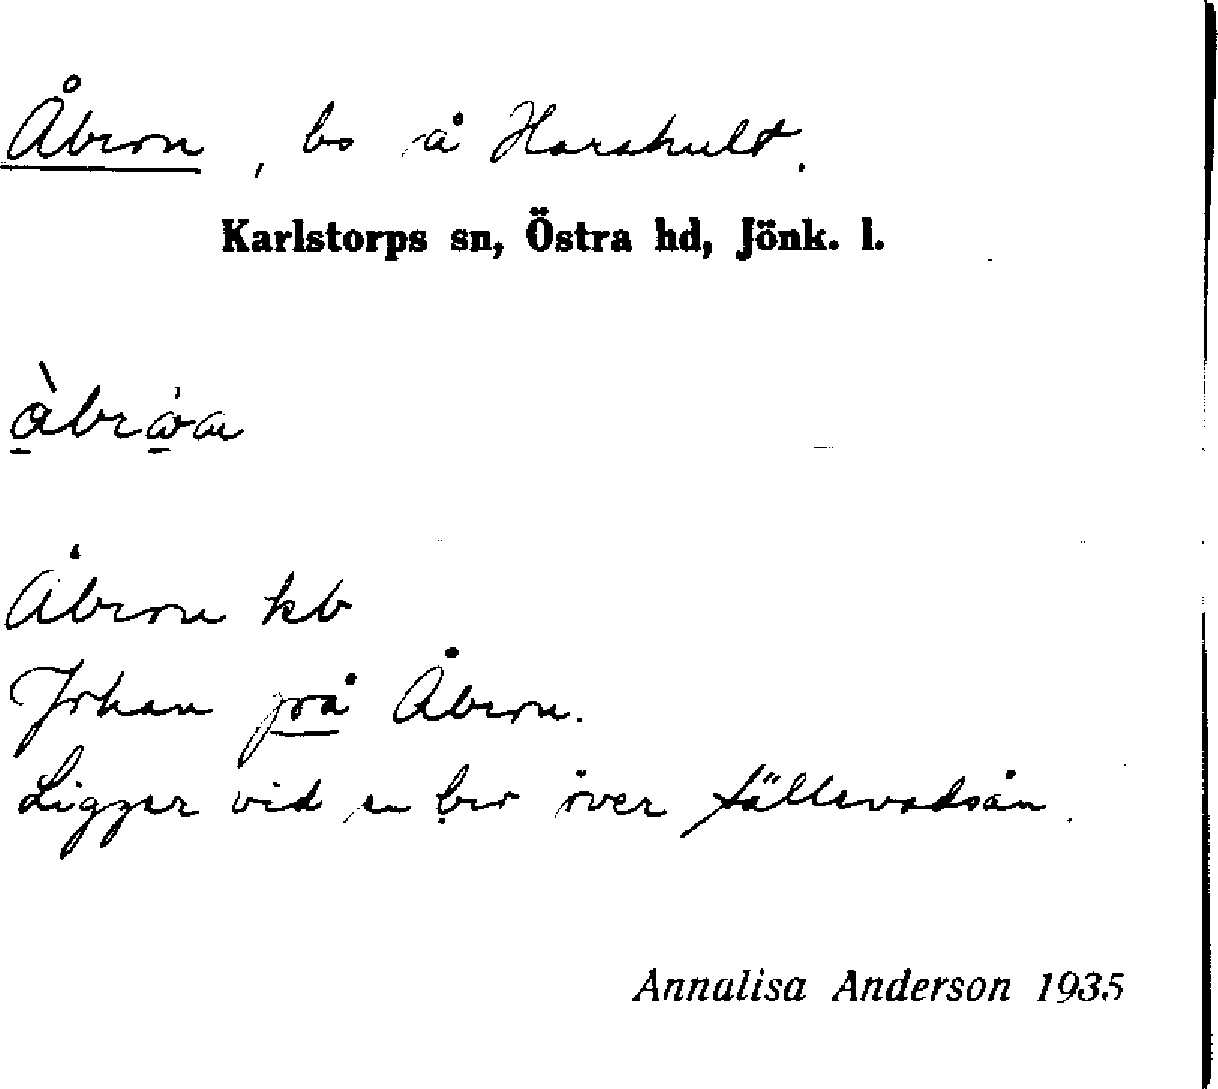 Åbron, bo å Harshult.
Karlstorps sn, Östra hd, Jönk. l.
Åbron kb
Johan på Åbron.
Ligger vid en bro över fällevadsån.
Annalisa Anderson 1935